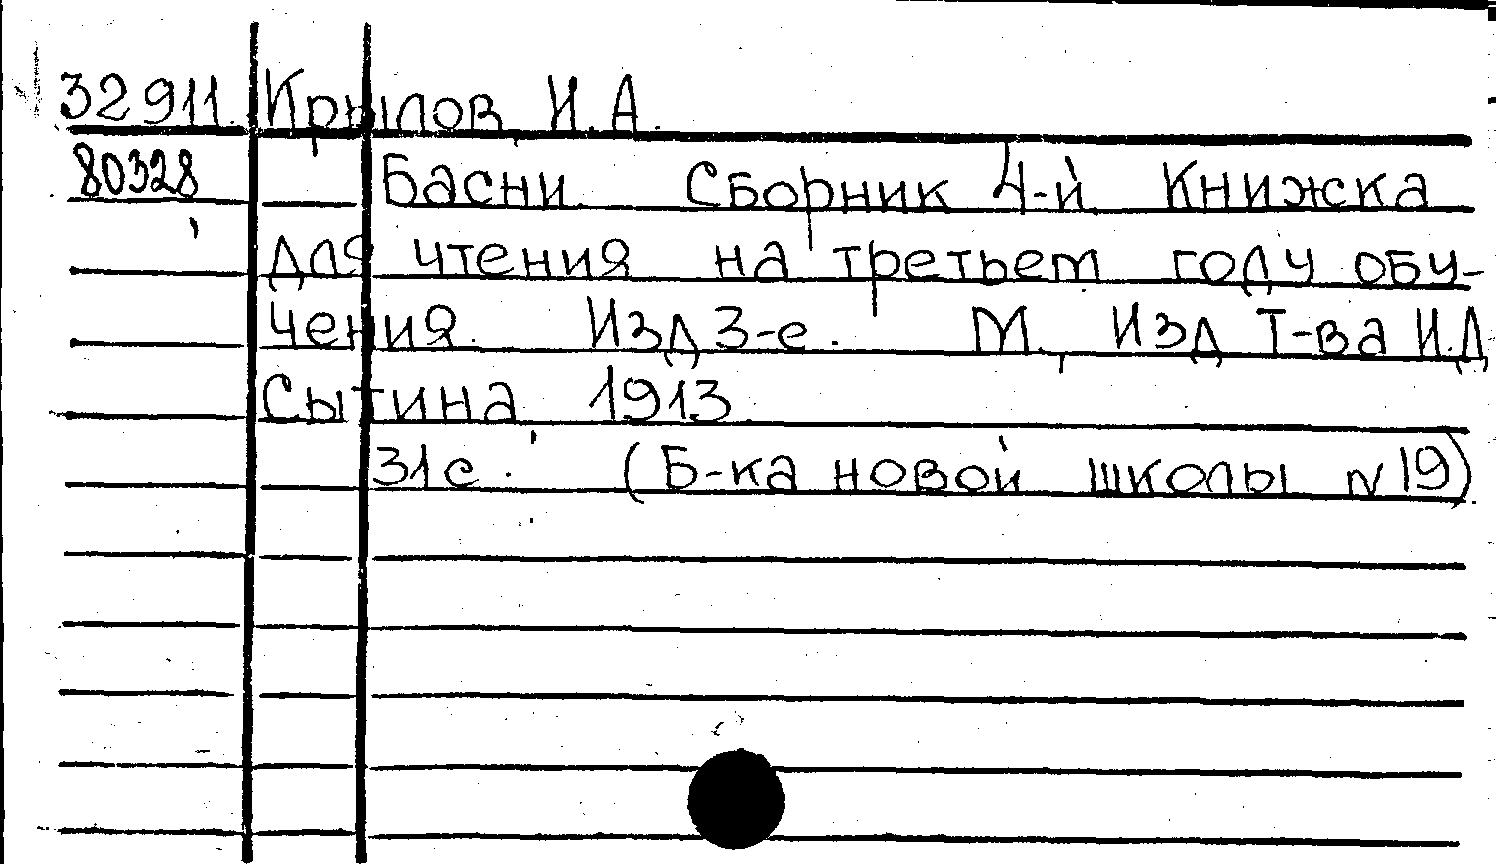 32911 Крылов И.А.
80328 Басни. Сборник 4-й Книжка
для чтения на третьем году обу-
чения. Изд 3-е. М., Изд Т-ва И.Д
Сытина 1913
31с. (Б-ка новой школы №19).